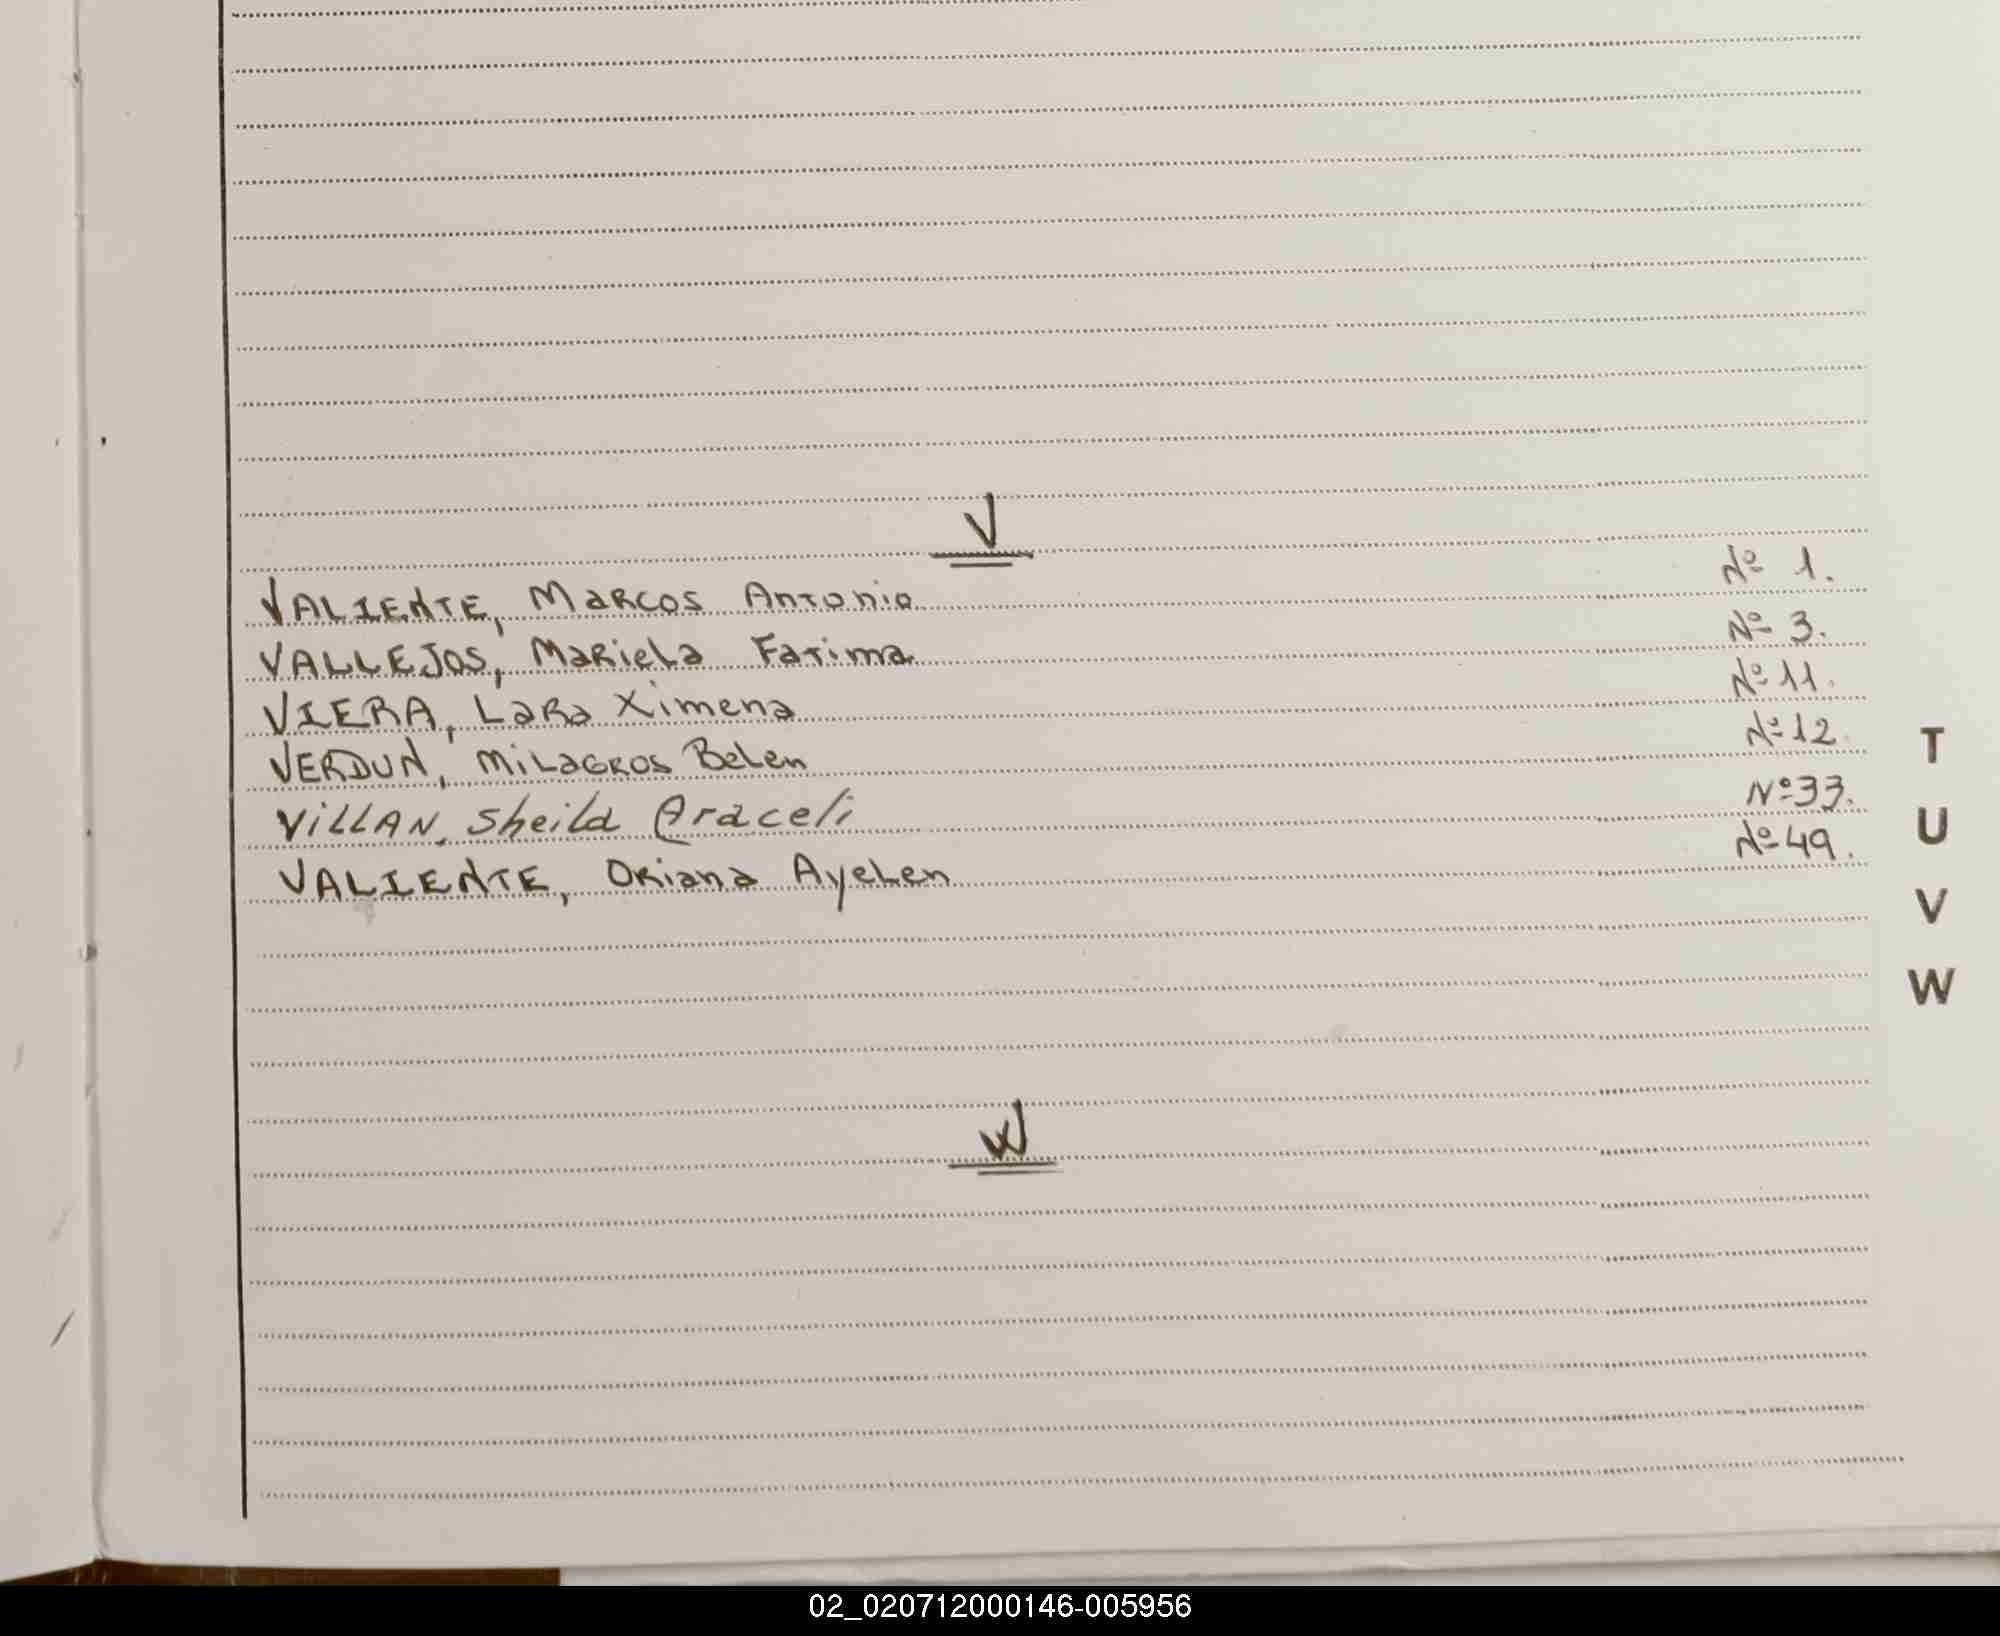 V
VALIENTE, Marcos Antonio Nº 1.
VALLEJOS, Mariela Fatima Nº 3.
VIERA, Lara Ximena Nº 11.
VERDUN, Milagros Belen Nº 12.
VILLAN, Sheila Araceli Nº 33.
VALIENTE, Oriana Ayelen Nº 49.
W
T
U
V
W
02_020712000146-005956